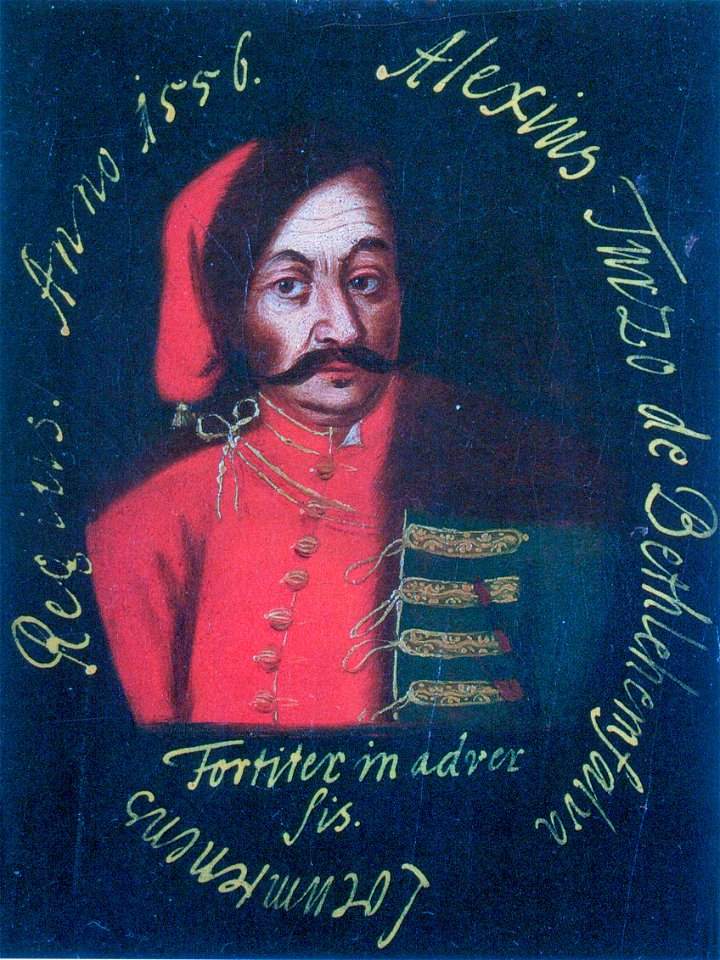 Alexius Turzo de Bethlehemfalva
Locumtenens
Regius. Anno 1556.
Fortiter in adver
sis.